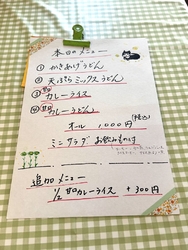 本日のメニュー
① かきあげうどん
② 天ぷらミックスうどん
③ カレーライス
④ カレーうどん
オール 1000円 (税込)
ミニサラダ お飲みもの付
追加メニュー
1/2 甘口カレーライス +300円